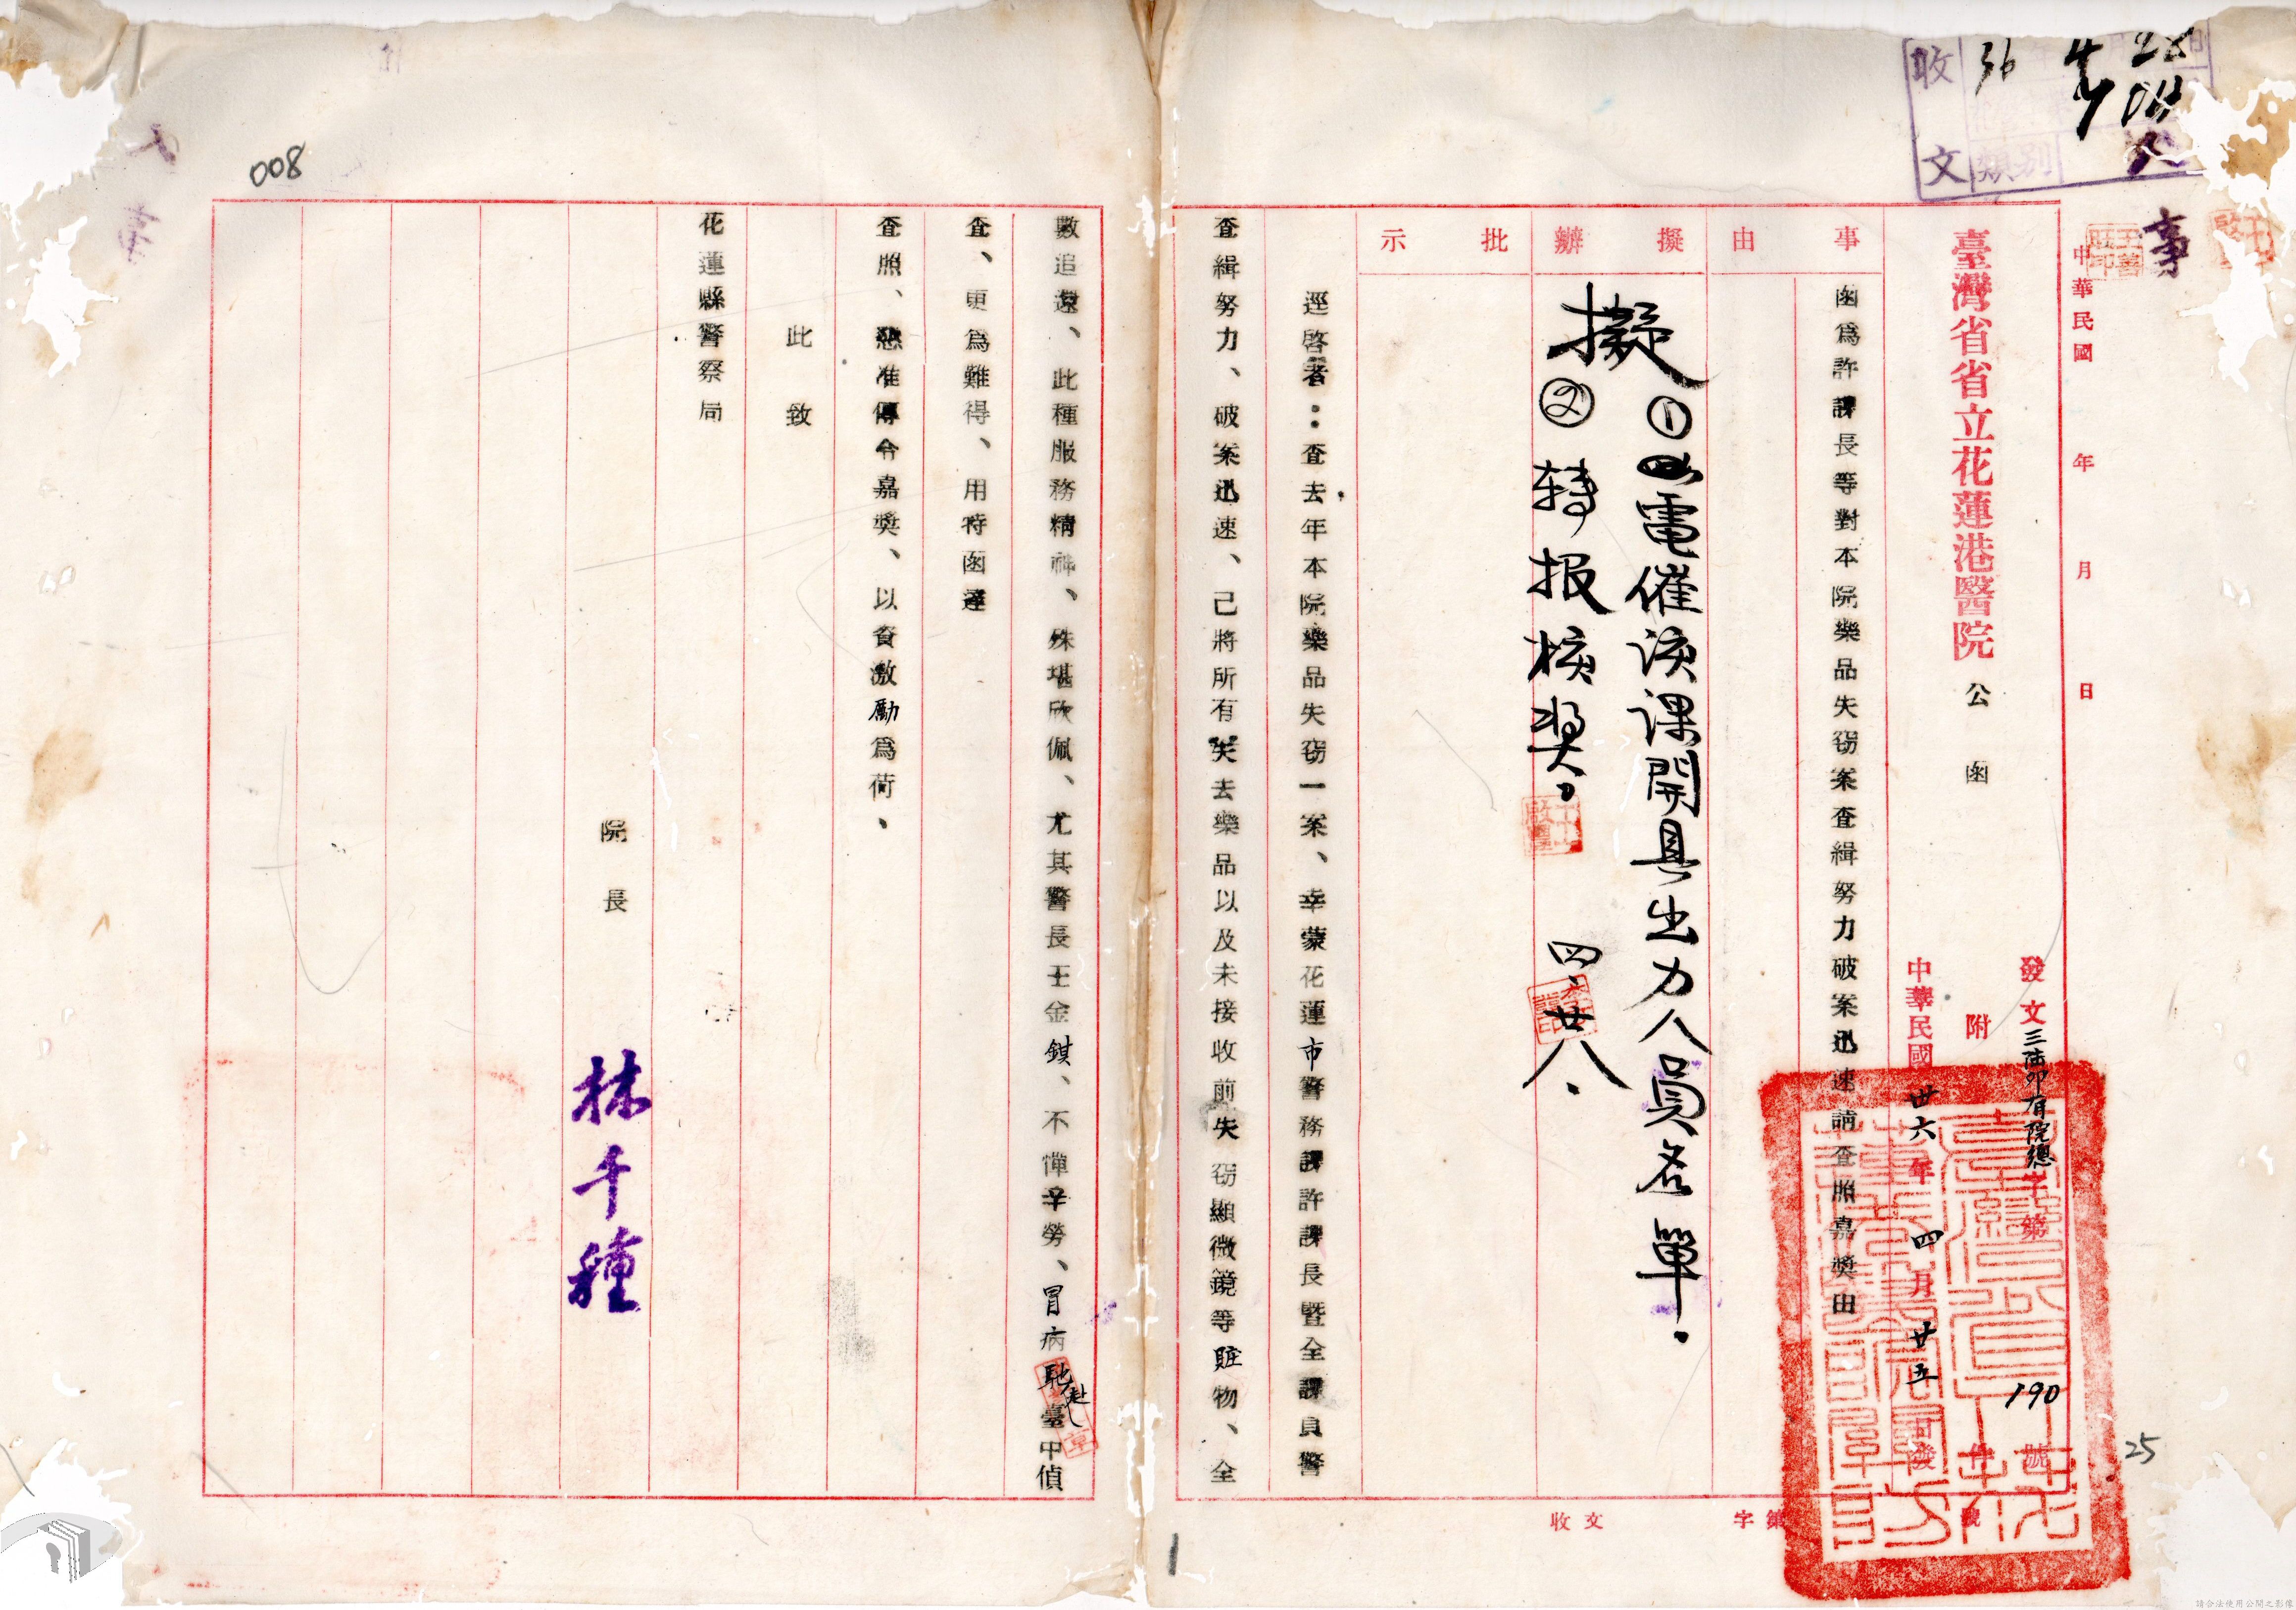 收文
36 4 28
類別
人事
中華民國 年 月 日
臺灣省省立花蓮港醫院 公函
發文三陸卯有院總字第190號
附 件
中華民國卅六年四月廿五日發
25
事由
函爲許課長等對本院藥品失窃案查緝努力破案迅速請查照嘉獎由
擬辦
擬①電催該課開具出力人員名單.
②转报核獎.
四、廿八.
批示
逕啓者:查去年本院藥品失窃一案、幸蒙花蓮市警務課許課長暨全課員警
查緝努力、破案迅速、己將所有失去藥品以及未接收前失窃顯微鏡等賍物、全
收文 字第 號
1
數追還、此種服務精神、殊堪欣佩、尤其警長王金錤、不憚辛勞、冒病赴臺中偵
查、更爲難得、用特函達
查照、懇准傳令嘉獎、以資激勵爲荷、
此致
花蓮縣警察局
院長
林千種
008
請合法使用公開之影像